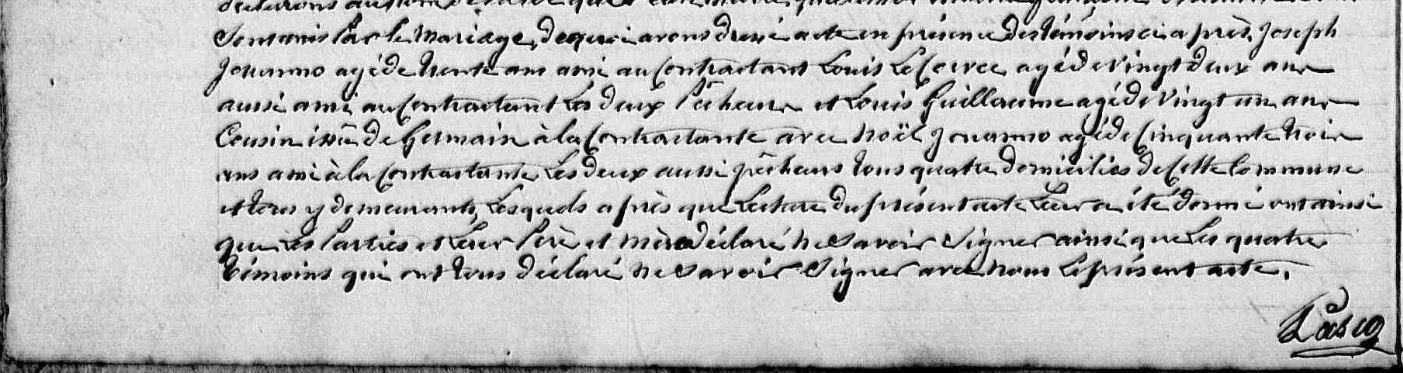 Sont unis par le mariage, de quoi avons dressé acte en présence des témoins ci après, Joseph
Jouanno agé de trente ans ami au Contractant Louis Le Correc agé de vingt deux ans
aussi ami au Contractant Les deux Pêcheurs et Louis Guillaume agé de vingt un ans
Cousin issû de Germain à la Contractante avec Noël Jouanno agé de Cinquante trois
ans ami à la Contractante Les deux aussi pêcheurs tous quatre domiciliés de Cette Commune
et tous y demeurants, Lesquels après que Lecture du présent acte Leur a été donné ont ainsi
que Les Parties et Leur Père et Mère déclaré Ne Savoir Signer ainsi que Les quatre
témoins qui ont tous déclaré Ne Savoir Signer avec Nous Le présent acte.